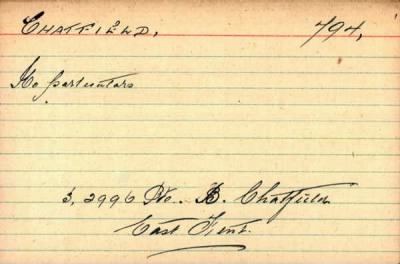 CHATFIELD. 794,
No particulars
3, 2996 Pte. B. Chatfield
East Kent.